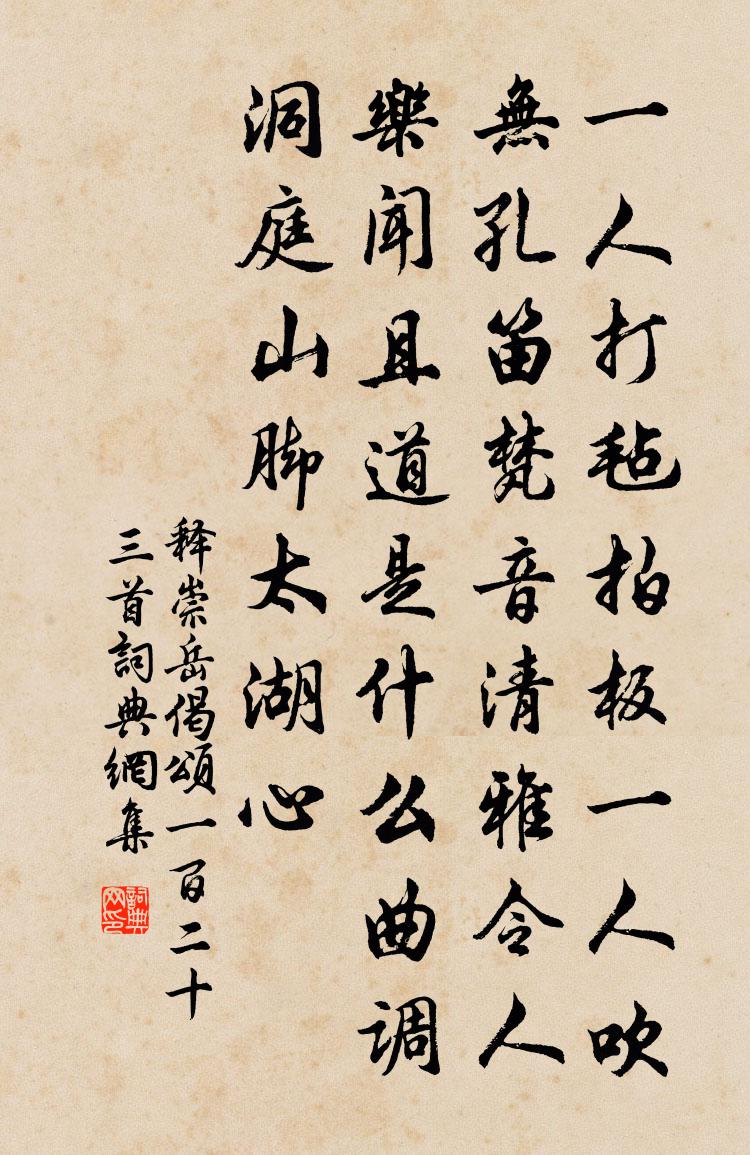 一人打毡拍板一人吹
無孔笛梵音清雅令人
樂聞且道是什么曲调
洞庭山脚太湖心
释崇岳偈頌一百二十
三首詞典網集
詞典
网印